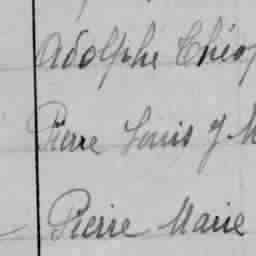 Adolphe Théop
Pierre Louis J M
Pierre Marie